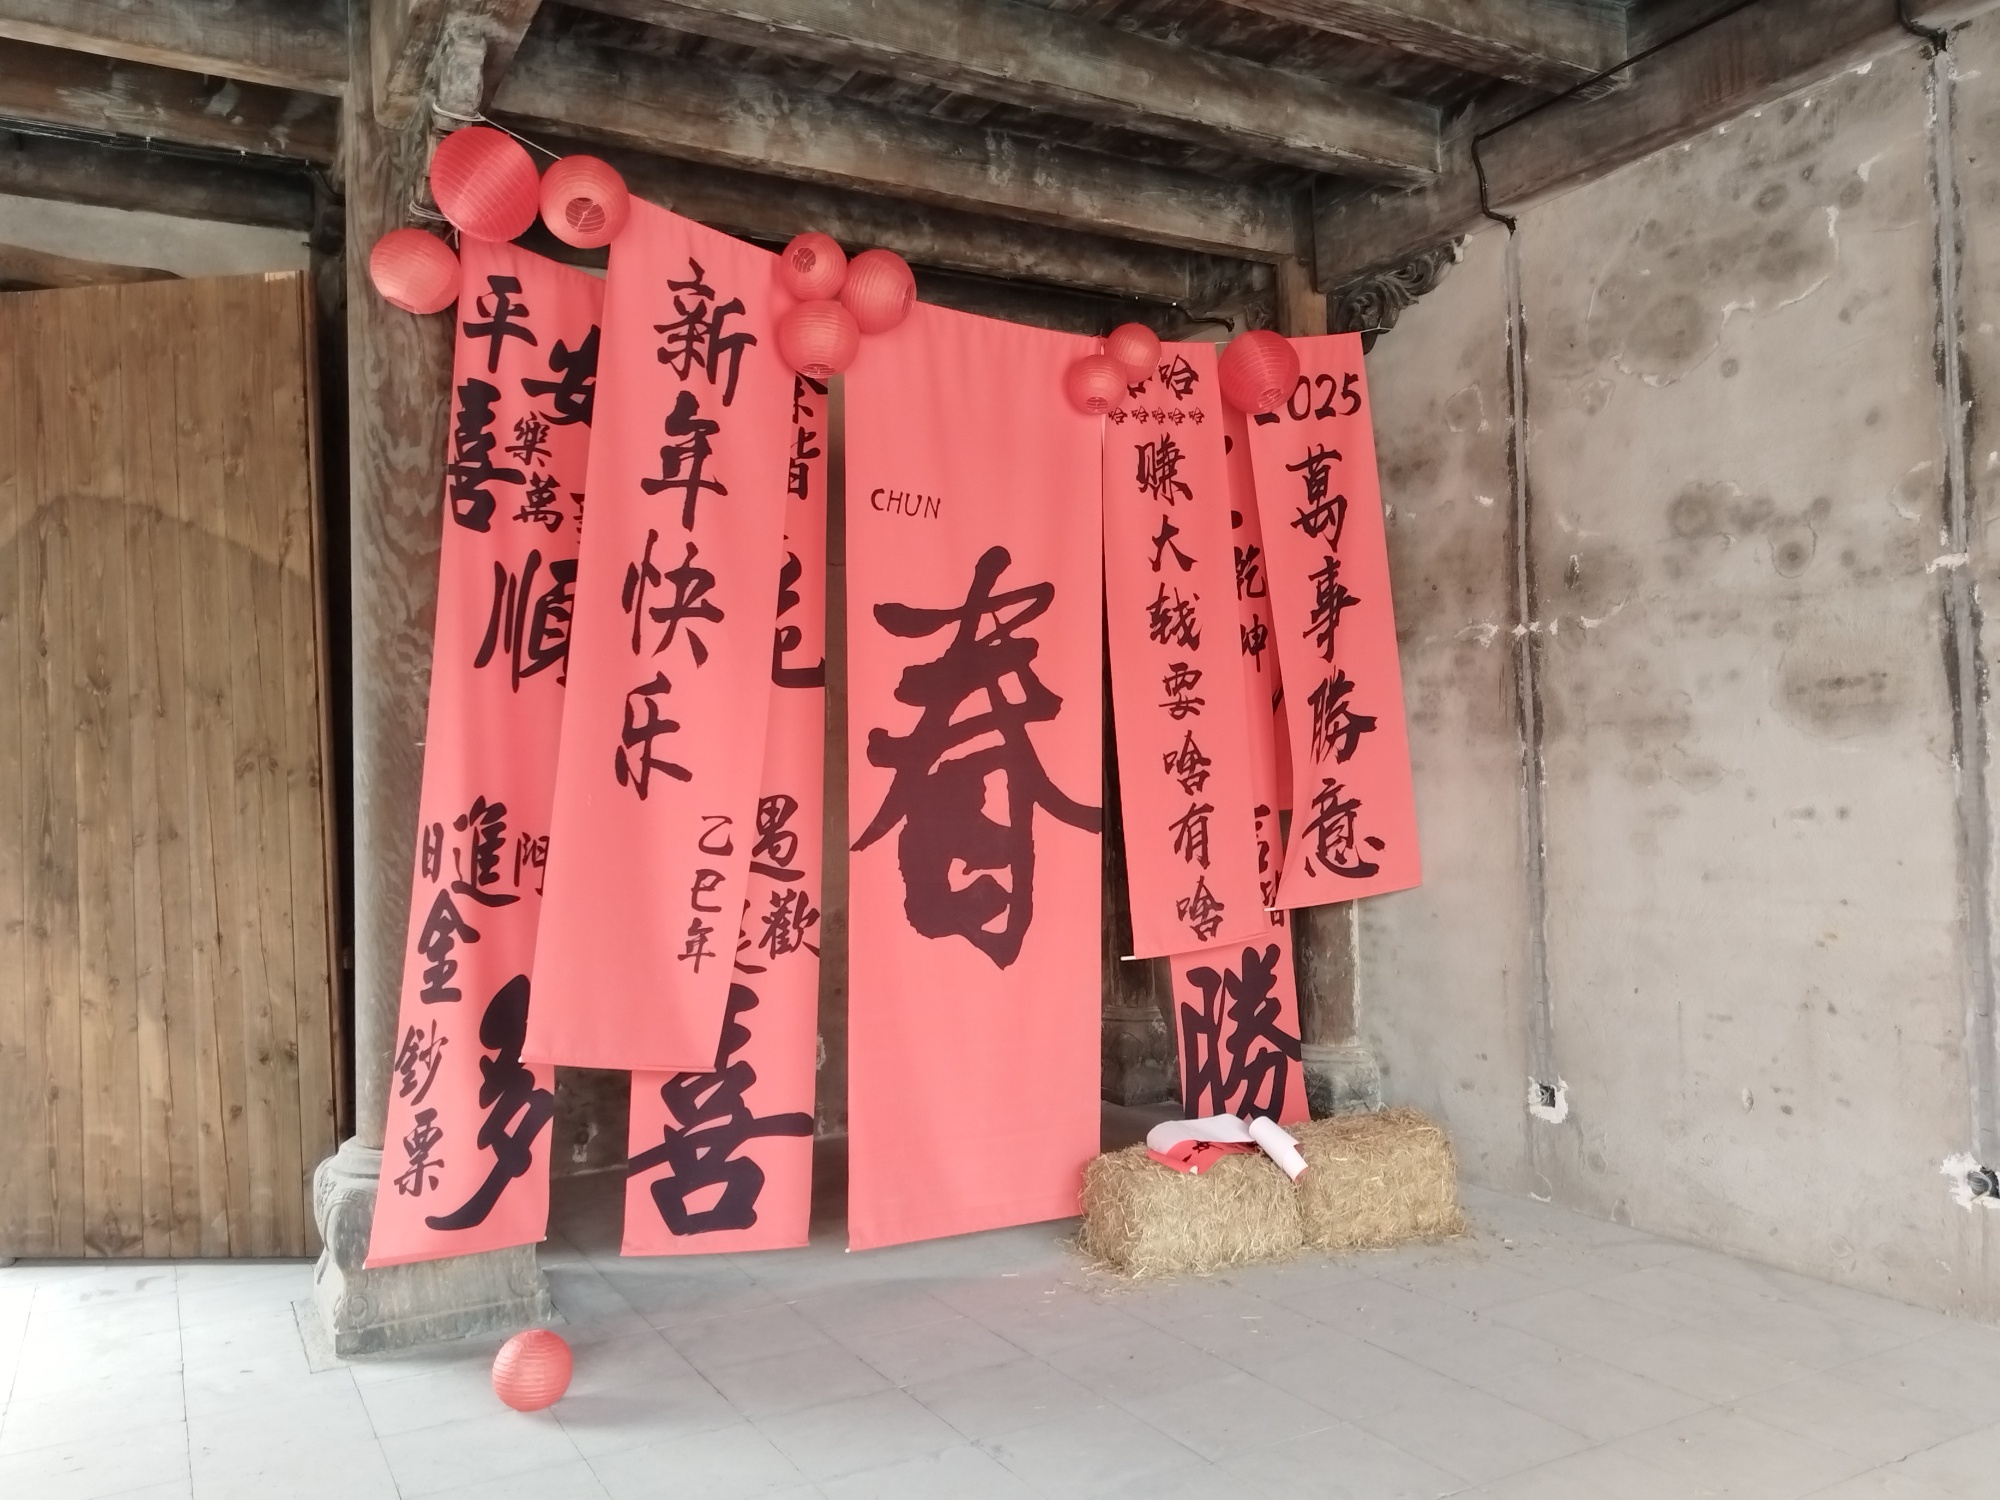 平安
喜樂
萬
順
日進
金
鈔票
多
新年快乐
乙巳年
皆
遇
歡
喜
CHUN
春
哈
哈哈哈哈哈
赚大钱要啥有啥
乾坤
勝
2025
萬事勝意